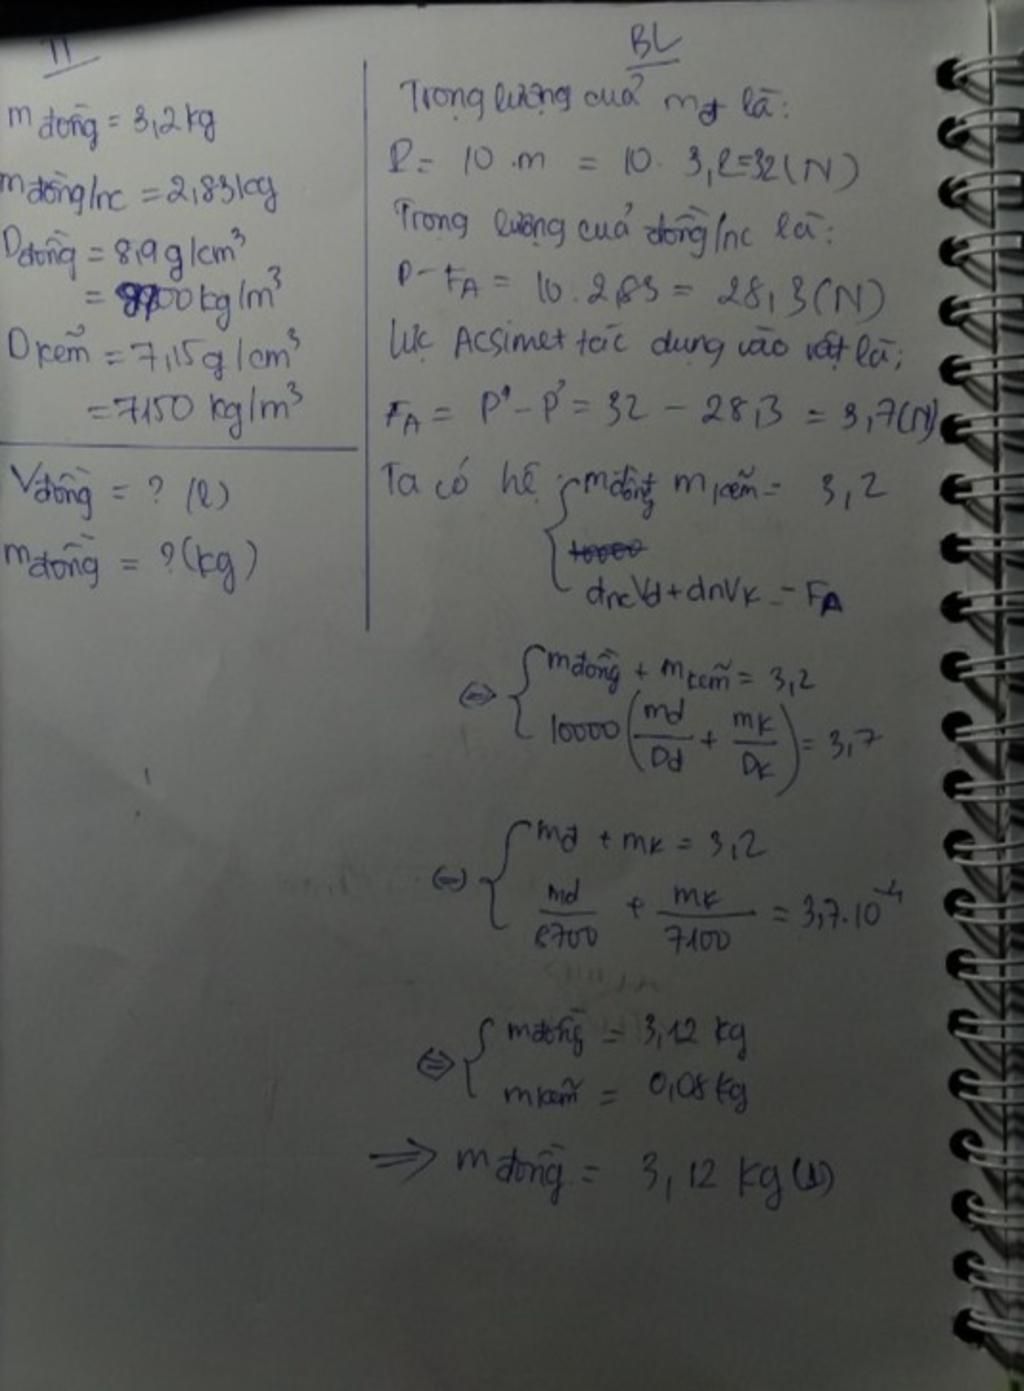 TT
m đồng = 3,2 kg
m đồng/nc = 2,83 kg
D đồng = 8,9 g/cm³
= 8900 kg/m³
D kẽm = 7,15 g/cm³
= 7150 kg/m³
V đồng = ? (l)
m đồng = ? (kg)
BL
Trọng lượng của m đ là:
P = 10 . m = 10 . 3,2 = 32 (N)
Trọng lượng của đồng/nc là:
P - FA = 10 . 2,83 = 28,3 (N)
Lực Acsimet tác dụng vào vật là:
FA = P - P' = 32 - 28,3 = 3,7 (N)
Ta có hệ { m đồng + m kẽm = 3,2
10000
dncVd + dnVK = FA
⇔ { m đồng + m kẽm = 3,2
10000 (md/Dd + mK/DK) = 3,7
⇔ { mđ + mK = 3,2
md/8700 + mK/7100 = 3,7.10⁻⁴
⇔ { m đồng = 3,12 kg
m kẽm = 0,08 kg
⇒ m đồng = 3,12 kg